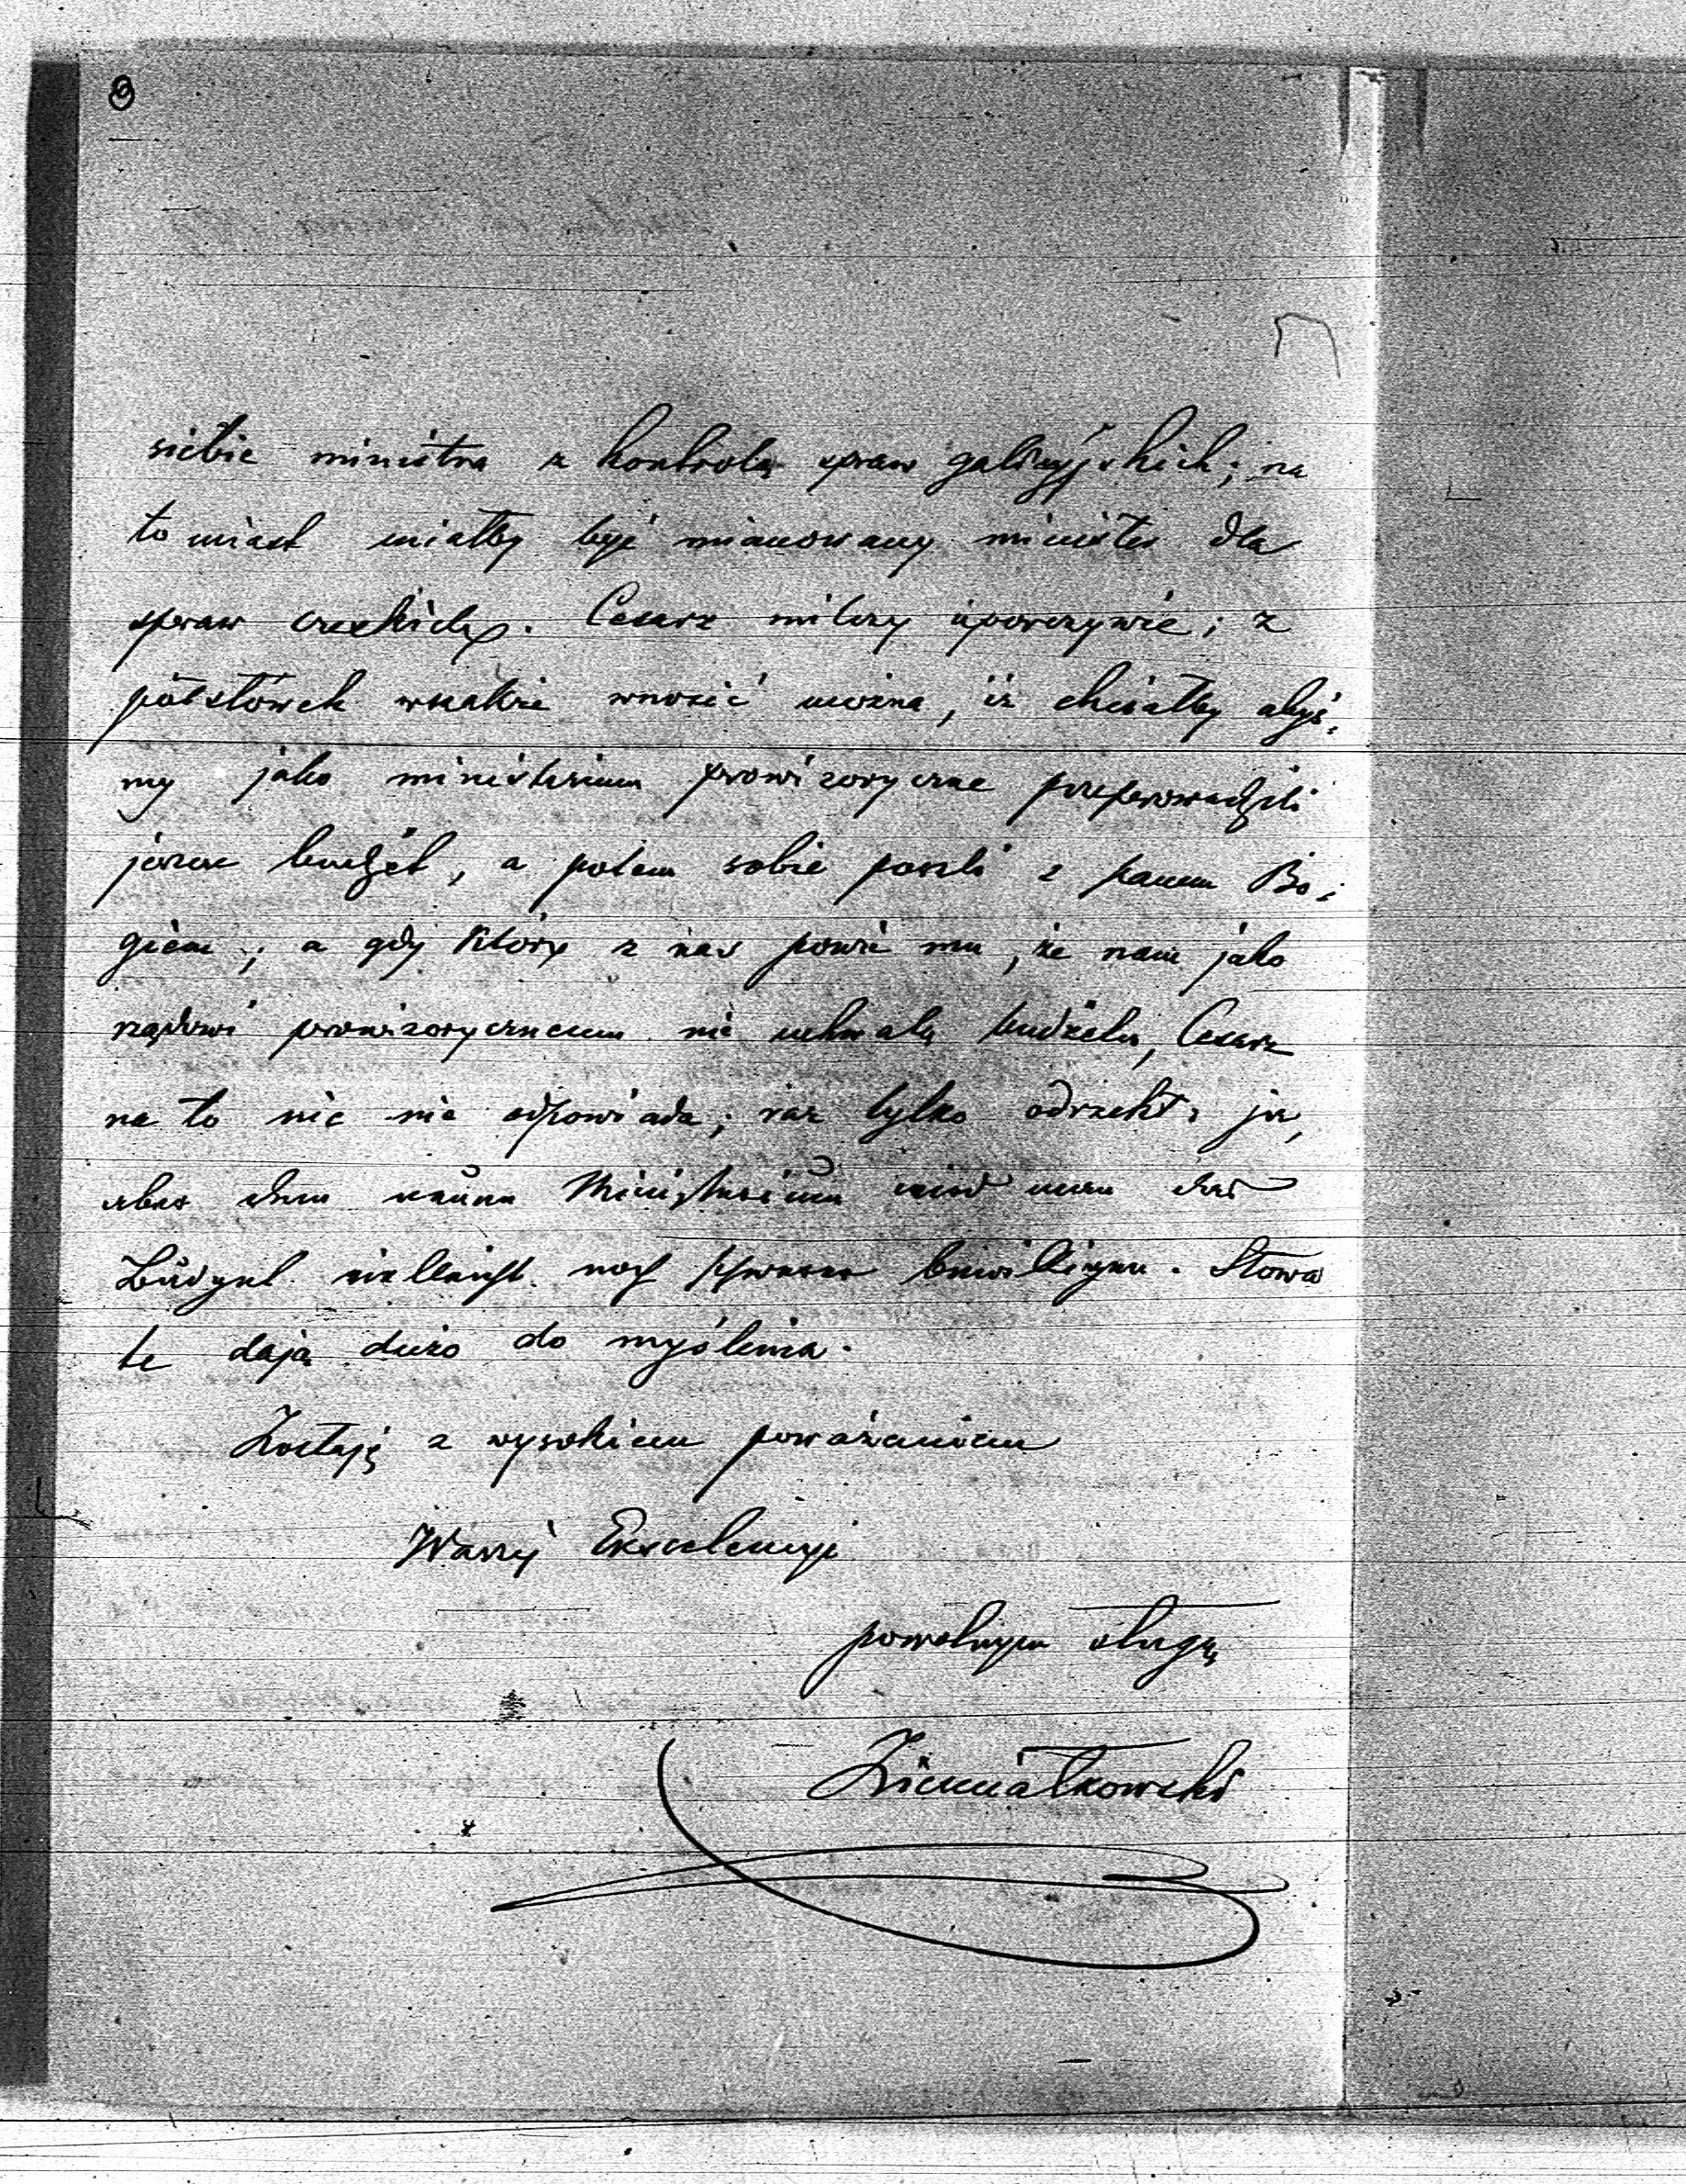 siebie ministra z kontrolą spraw galicyjskich; na
to miast miałby być mianowany minister dla
spraw czeskich. Cesarz milczy uporczywie; z
półsłówek wszakże wnosić można, iż chciałby abyś-
my jako ministerium prowizoryczne przeprowadzili
jeszcze budżet, a potem sobie poszli z panem Bo-
giem; a gdy który z nas powie mu, że nam jako
rządowi prowizorycznemu nie uchwalą budżetu, Cesarz
na to nic nie odpowiada; raz tylko odrzekł: ja,
aber dem neuen Ministerium wird man das
Budget vielleicht noch schwerer bewilligen. Słowa
te dają dużo do myślenia.
Zostaję z wysokiem poważaniem
Waszej Excelencyi
powolnym sługą
Ziemiałkowski